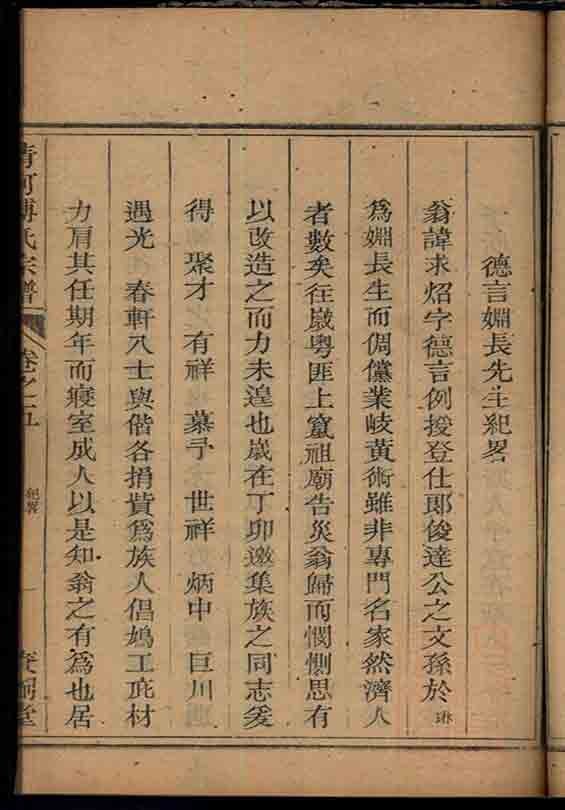 德言姻長先生紀畧
翁諱求炤字德言例授登仕郎俊達公之文孫於琳
爲姻長生而倜儻業岐黃術雖非專門名家然濟人
者數矣往歲粵匪上竄祖廟告災翁歸而憫惻思有
以改造之而力未遑也歲在丁卯邀集族之同志爰
得 聚才 有祥 慕予 世祥 炳中 巨川
遇光 春軒八士與偕各捐貲爲族人倡鳩工庀材
力肩其任期年而寢室成人以是知翁之有爲也居
清河傅氏宗譜
卷之五
紀畧
一